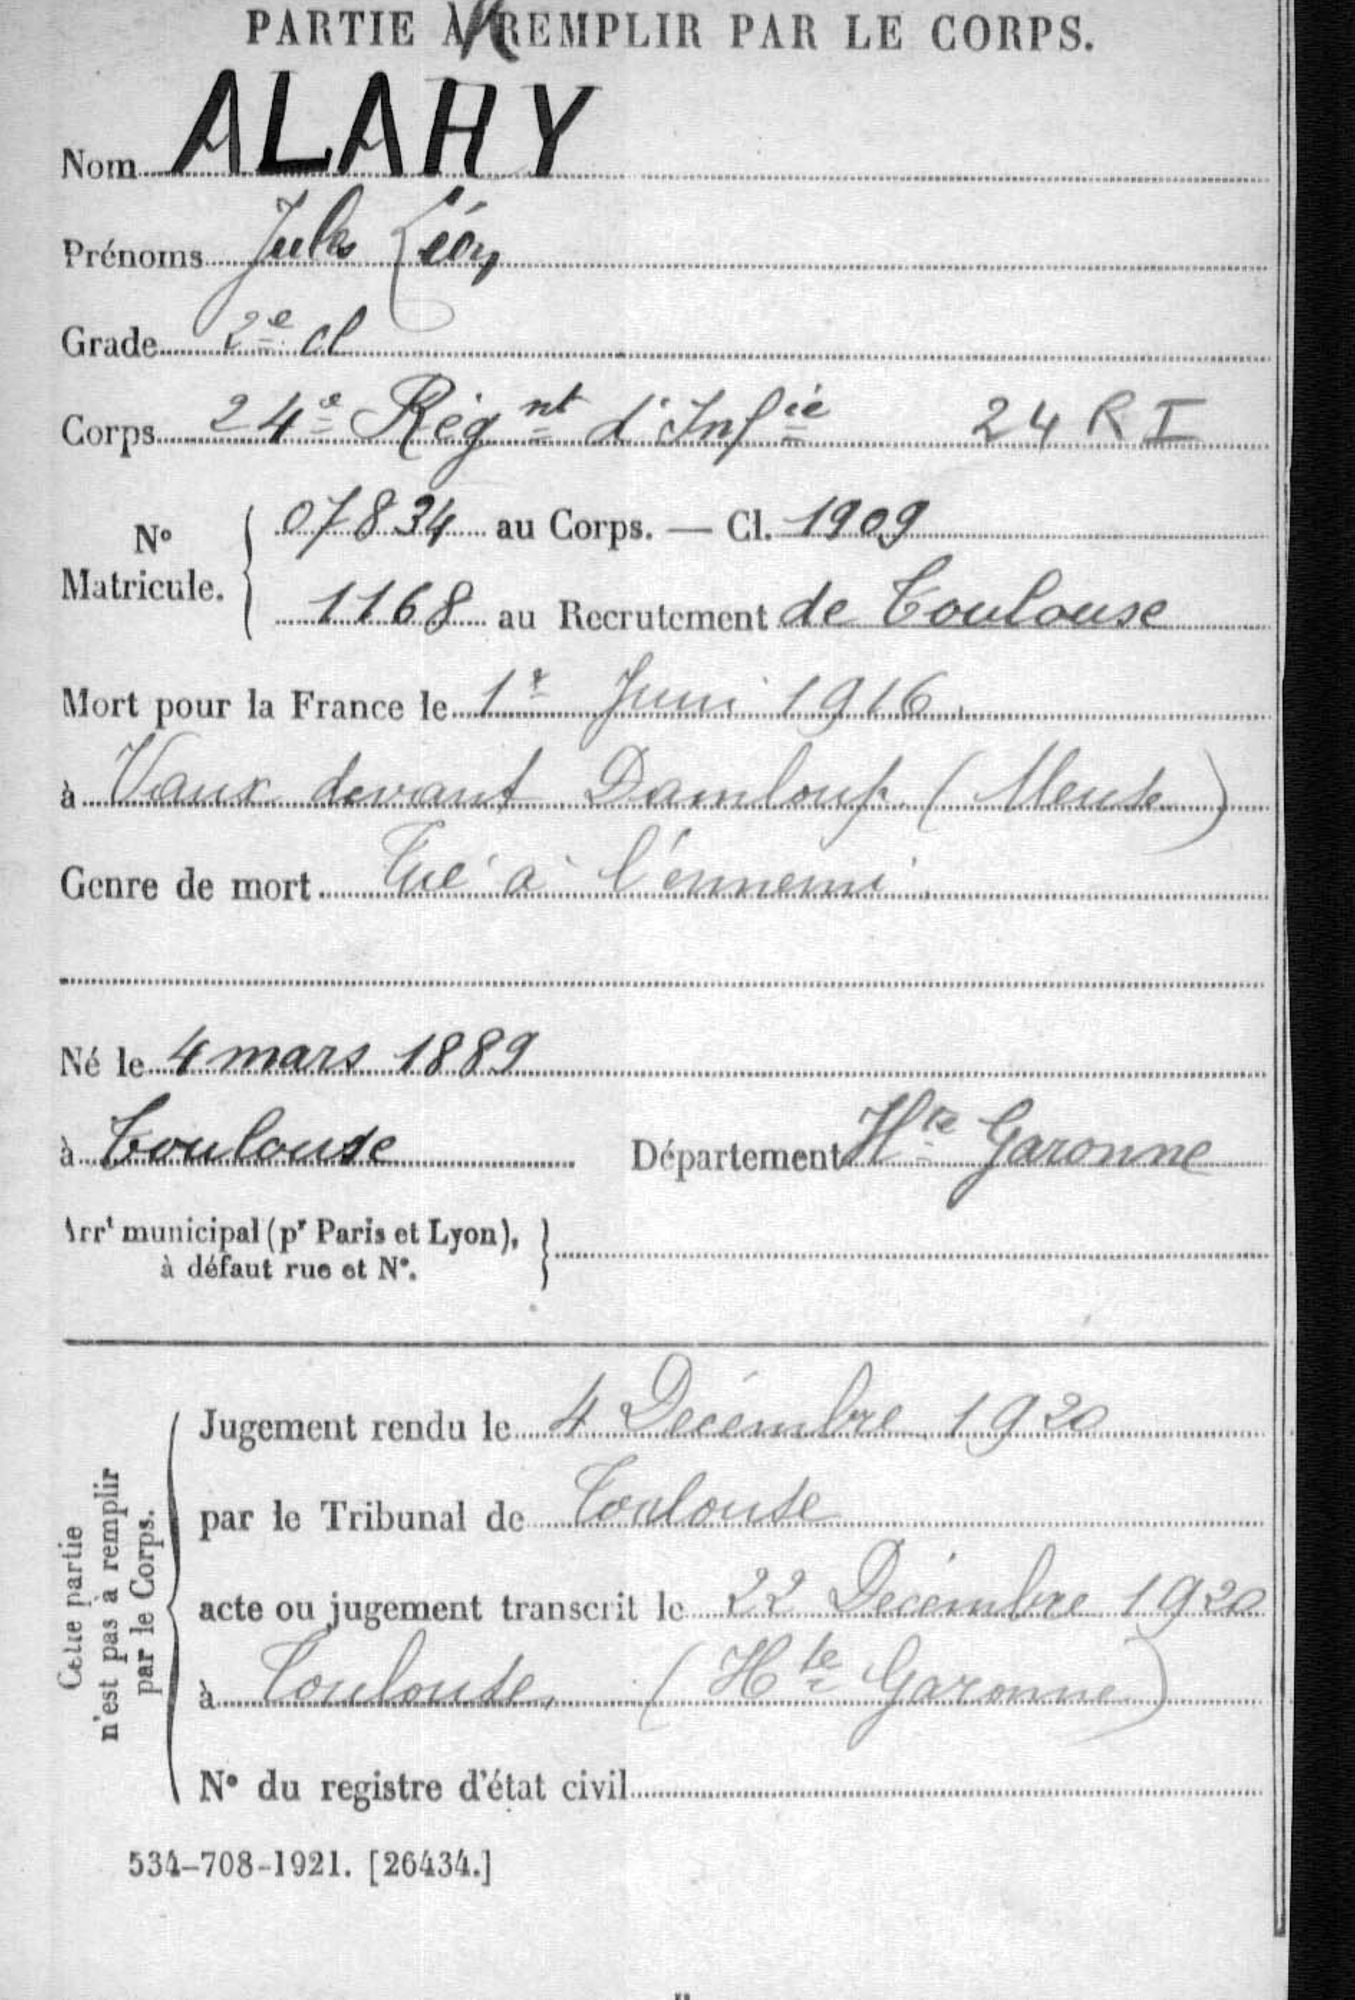 PARTIE A REMPLIR PAR LE CORPS.
Nom ALARY
Prénoms Jules Léon
Grade 2e cl
Corps 24e Régnt d'Infie 24 RI
N° Matricule. 07834 au Corps. — Cl. 1909
1168 au Recrutement de Toulouse
Mort pour la France le 1r Juin 1916
à Vaux devant Damloup (Meuse)
Genre de mort Tué à l'ennemi
Né le 4 mars 1889
à Toulouse Département Hte Garonne
Arrt municipal (pr Paris et Lyon),
à défaut rue et N°.
Cette partie
n'est pas à remplir
par le Corps.
Jugement rendu le 4 Décembre 1920
par le Tribunal de Toulouse
acte ou jugement transcrit le 22 Décembre 1920
à Toulouse, (Hte Garonne)
N° du registre d'état civil
534-708-1921. [26434.]